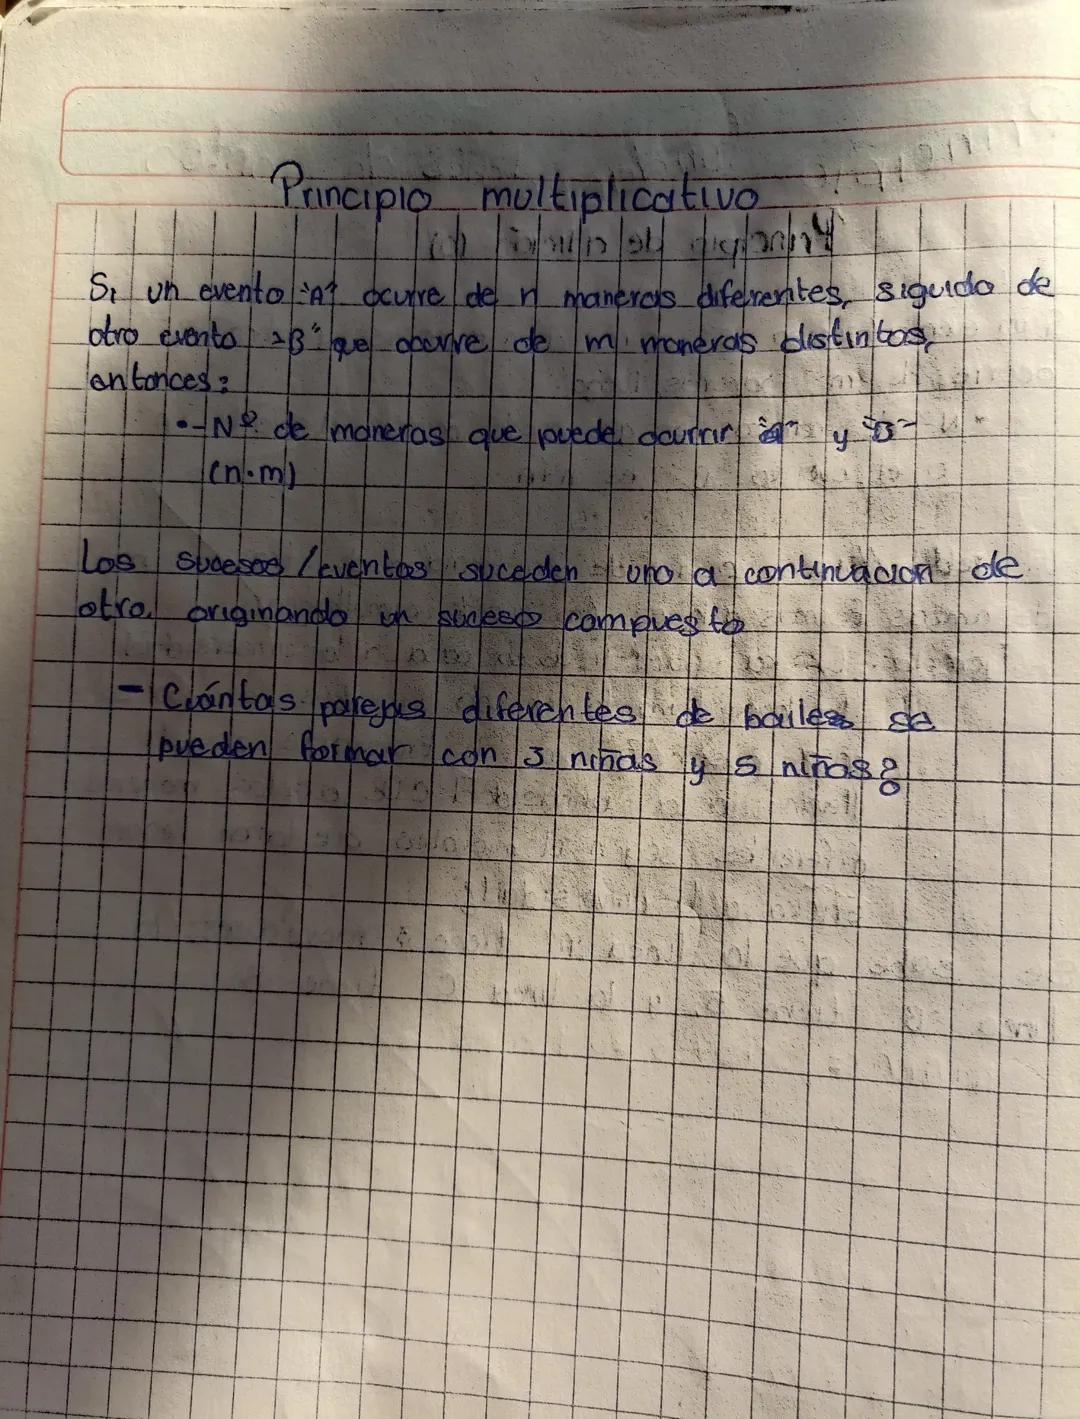 Principio multiplicativo
Si un evento "A" ocurre de n maneras diferentes, siguido de
otro evento "B" que ocurre de m maneras distintas,
entonces:
•- Nº de maneras que puede ocurrir "a" y "B"
(n·m)
Los sucesos / eventos suceden uno a continuación de
otro, originando un suceso compuesto
- Cuántas parejas diferentes de bailes se
pueden formar con 3 niñas y 5 niños?